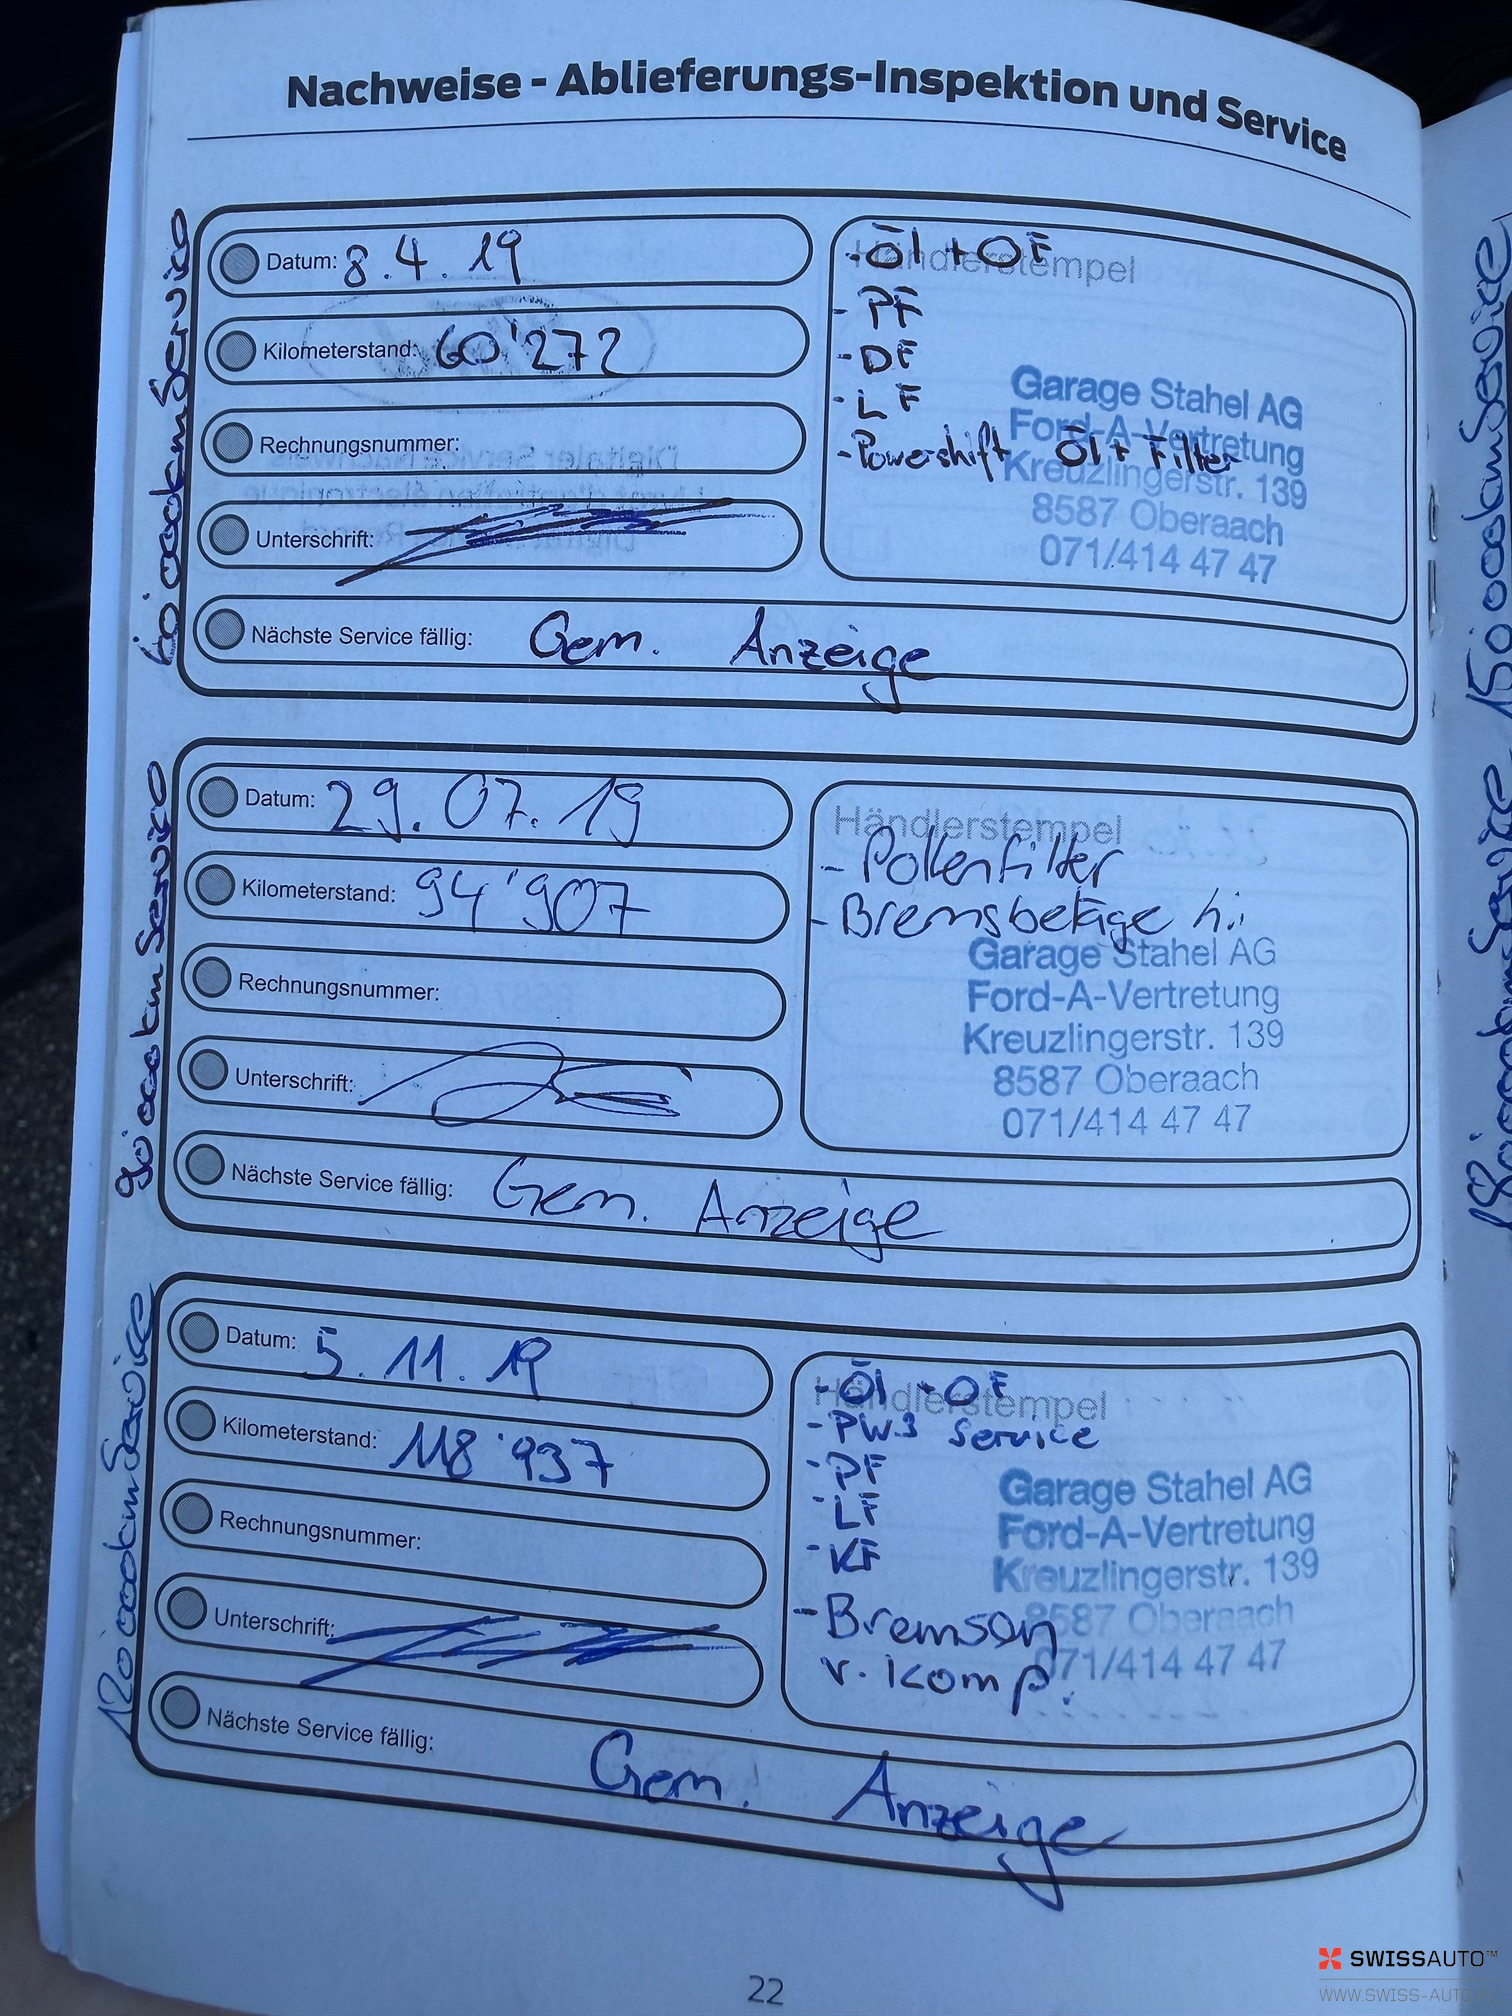 Nachweise - Ablieferungs-Inspektion und Service
60'000km Service
Datum: 8.4.19
Kilometerstand: 60'272
Rechnungsnummer:
Unterschrift:
Nächste Service fällig: Gem. Anzeige
Händlerstempel
- Öl + OF
- PF
- DF
- LF
- Powershift Öl + Filter
Garage Stahel AG
Ford-A-Vertretung
Kreuzlingerstr. 139
8587 Oberaach
071/414 47 47
90'000km Service
Datum: 29.07.19
Kilometerstand: 94'907
Rechnungsnummer:
Unterschrift:
Nächste Service fällig: Gem. Anzeige
Händlerstempel
- Pollenfilter
- Bremsbeläge hi.
Garage Stahel AG
Ford-A-Vertretung
Kreuzlingerstr. 139
8587 Oberaach
071/414 47 47
120'000km Service
Datum: 5.11.19
Kilometerstand: 118'937
Rechnungsnummer:
Unterschrift:
Nächste Service fällig: Gem. Anzeige
Händlerstempel
- Öl + OF
- PWS Service
- PF
- LF
- KF
- Bremsen
v. komp.
Garage Stahel AG
Ford-A-Vertretung
Kreuzlingerstr. 139
8587 Oberaach
071/414 47 47
22
150'000km Service
180'000km Service
SWISSAUTO™